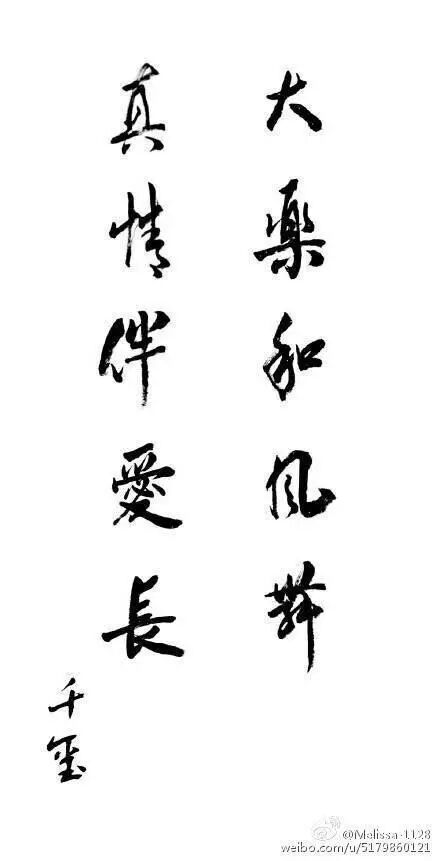 大樂和風舞
真情伴愛長
千璽
@Melissa-1128
weibo.com/u/5179860121